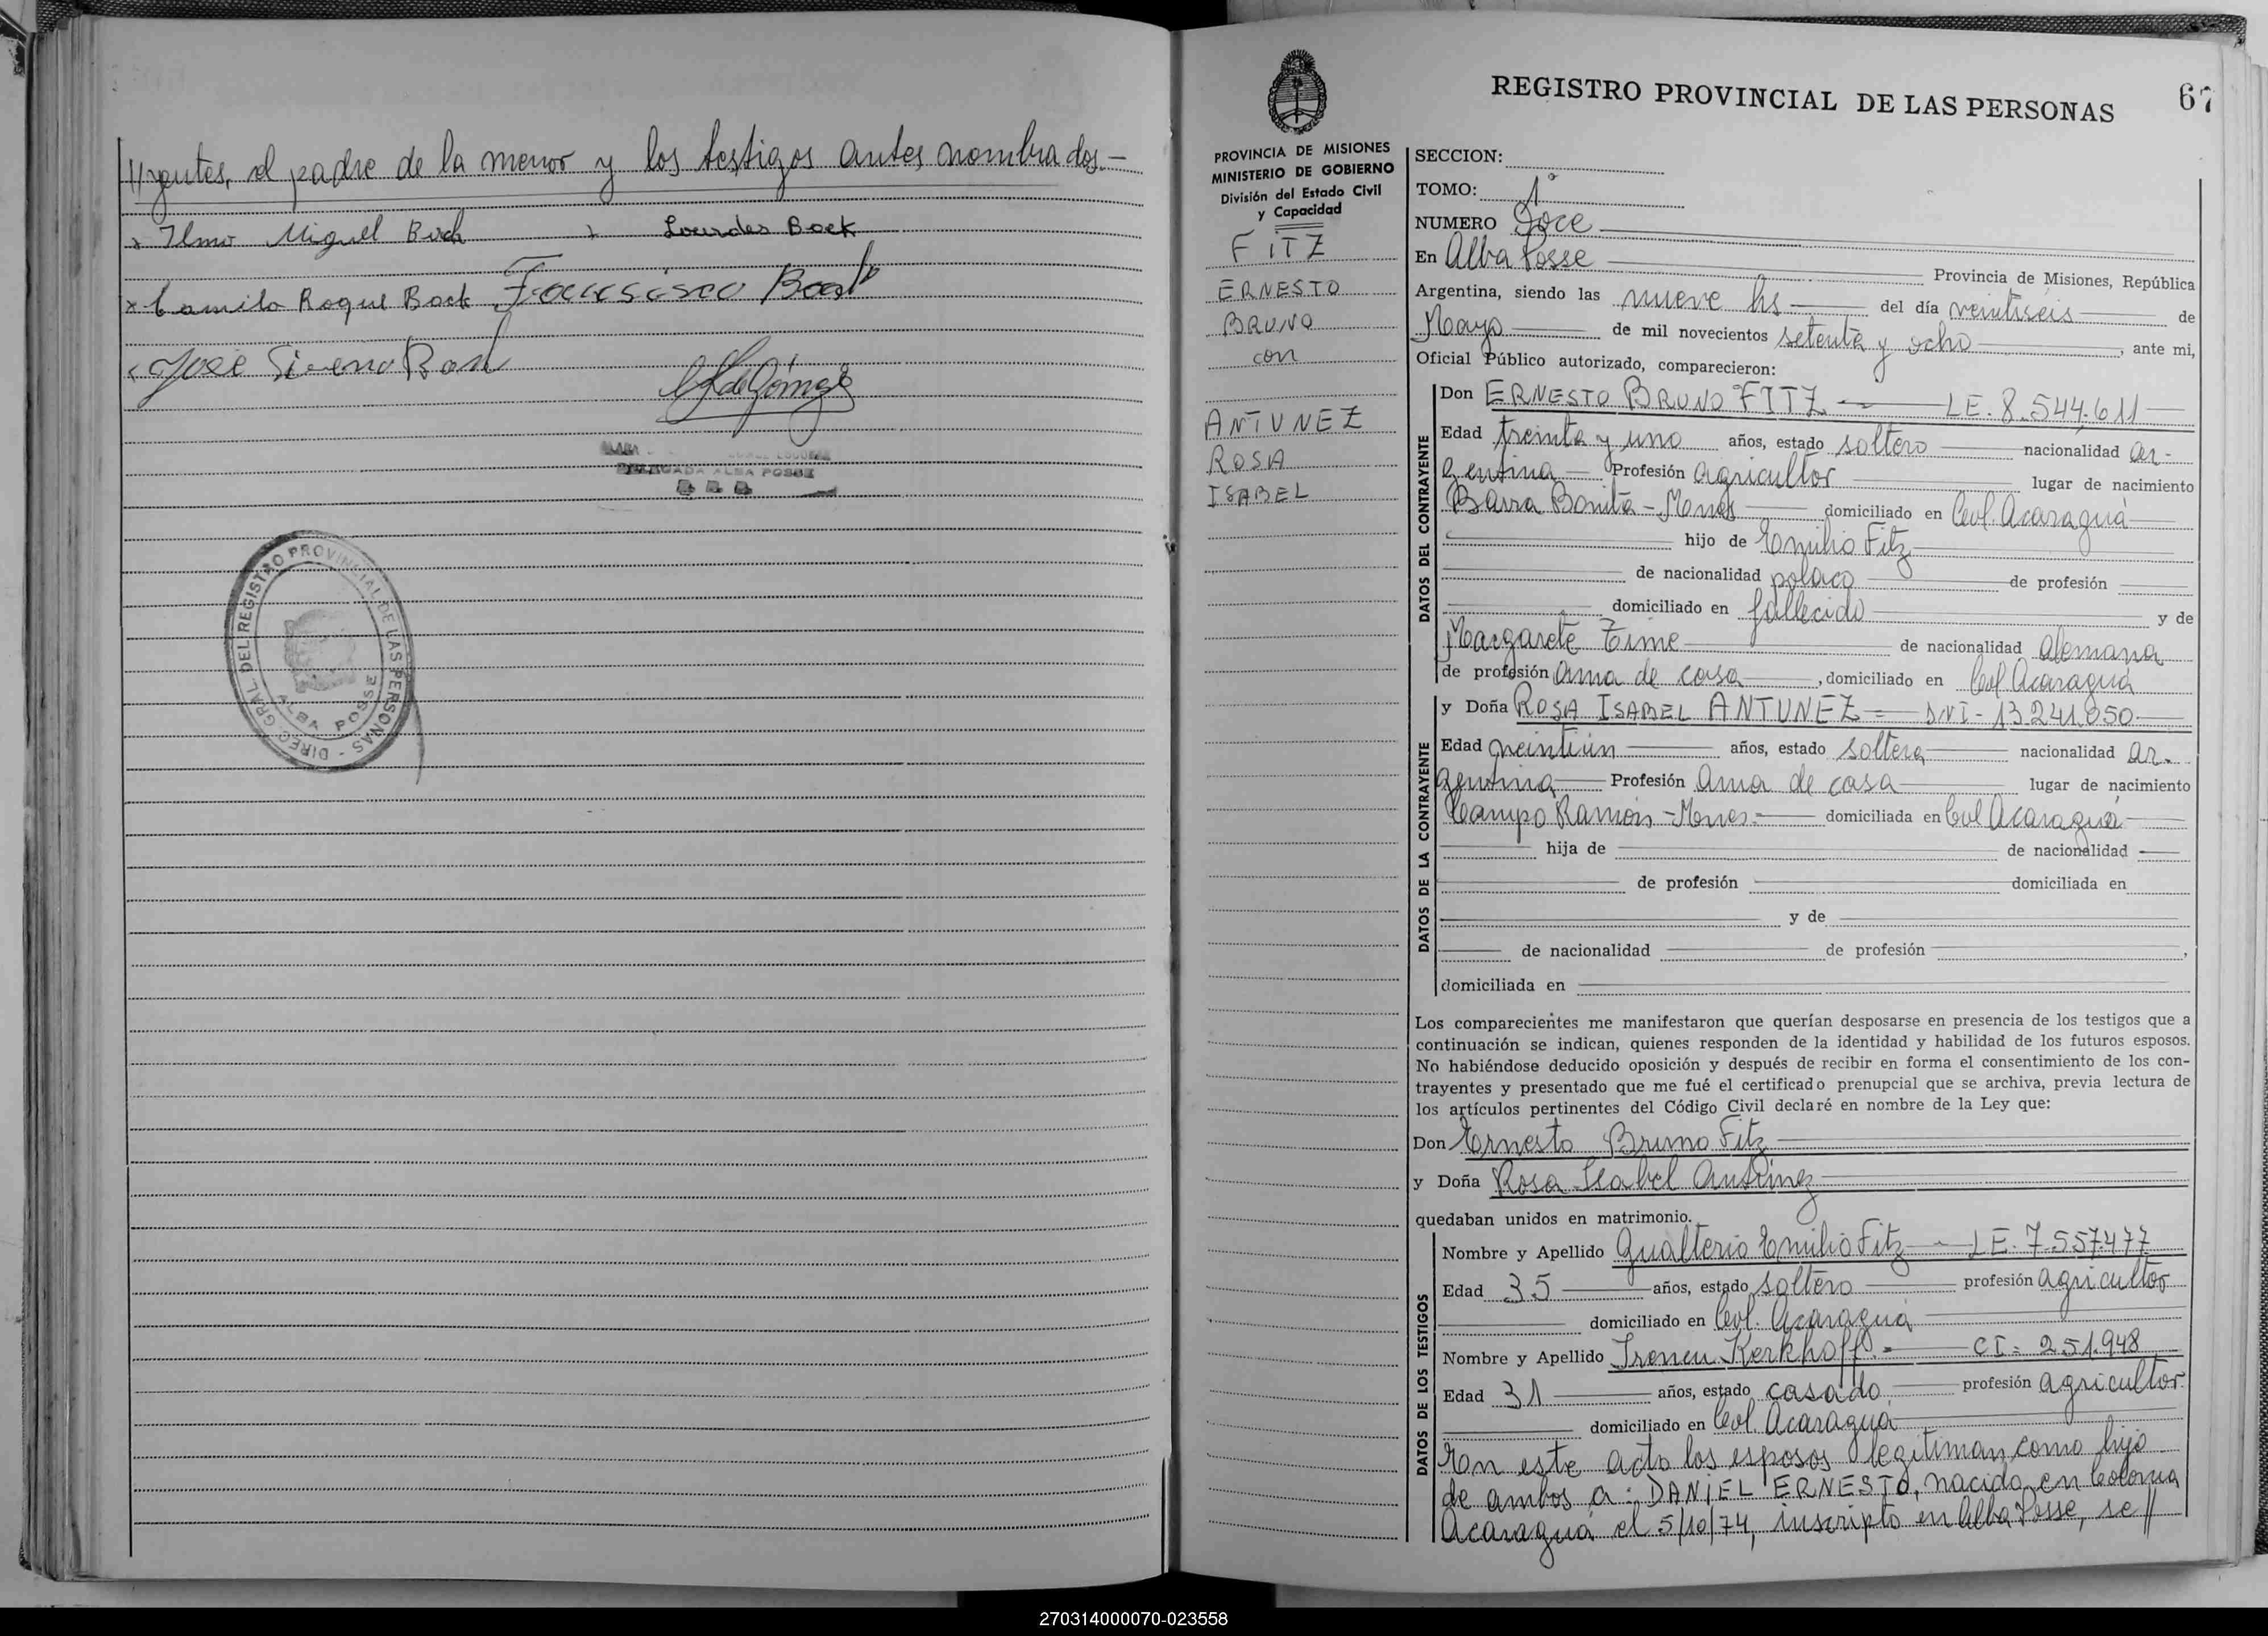 //yentes, el padre de la menor y los testigos antes nombrados.—
x Ilmo Miguel Bock x Lourdes Bock
x Camilo Roque Bock Francisco Bock
x José Sireno Bock
G de Gómez
DELEGADA ALBA POSSE
DIREC. GRAL. DEL REGISTRO PROVINCIAL DE LAS PERSONAS -
ALBA POSSE
REGISTRO PROVINCIAL DE LAS PERSONAS 67
PROVINCIA DE MISIONES
MINISTERIO DE GOBIERNO
División del Estado Civil
y Capacidad
FITZ
ERNESTO
BRUNO
con
ANTUNEZ
ROSA
ISABEL
SECCION:
TOMO: 1°
NUMERO Doce
En Alba Posse Provincia de Misiones, República
Argentina, siendo las nueve hs del día veintiséis de
Mayo de mil novecientos setenta y ocho, ante mi,
Oficial Público autorizado, comparecieron:
DATOS DEL CONTRAYENTE
Don ERNESTO BRUNO FITZ — LE. 8.544.611
Edad treinta y uno años, estado soltero nacionalidad ar-
gentina Profesión agricultor lugar de nacimiento
Barra Bonita - Mnes domiciliado en Col. Acaraguá
hijo de Emilio Fitz
de nacionalidad polaco de profesión
domiciliado en fallecido y de
Margarete Time de nacionalidad alemana
de profesión ama de casa, domiciliado en Col Acaraguá
DATOS DE LA CONTRAYENTE
y Doña ROSA ISABEL ANTUNEZ = DNI - 13.241.050
Edad veintiún años, estado soltera nacionalidad ar-
gentina Profesión ama de casa lugar de nacimiento
Campo Ramón - Mnes. domiciliada en Col Acaraguá
hija de de nacionalidad
de profesión domiciliada en
y de
de nacionalidad de profesión ,
domiciliada en
Los comparecientes me manifestaron que querían desposarse en presencia de los testigos que a
continuación se indican, quienes responden de la identidad y habilidad de los futuros esposos.
No habiéndose deducido oposición y después de recibir en forma el consentimiento de los con-
trayentes y presentado que me fué el certificado prenupcial que se archiva, previa lectura de
los artículos pertinentes del Código Civil declaré en nombre de la Ley que:
Don Ernesto Bruno Fitz
y Doña Rosa Isabel Antúnez
quedaban unidos en matrimonio.
DATOS DE LOS TESTIGOS
Nombre y Apellido Gualterio Emilio Fitz — LE. 7.557.477
Edad 35 años, estado soltero profesión agricultor
domiciliado en Col. Acaraguá
Nombre y Apellido Ireneu Kerkhoff. = CI = 251.948
Edad 31 años, estado casado profesión agricultor
domiciliado en Col. Acaraguá
En este acto los esposos legitiman como hijo
de ambos a: DANIEL ERNESTO, nacido en Colonia
Acaraguá el 5/10/74, inscripto en Alba Posse, se//
270314000070-023558